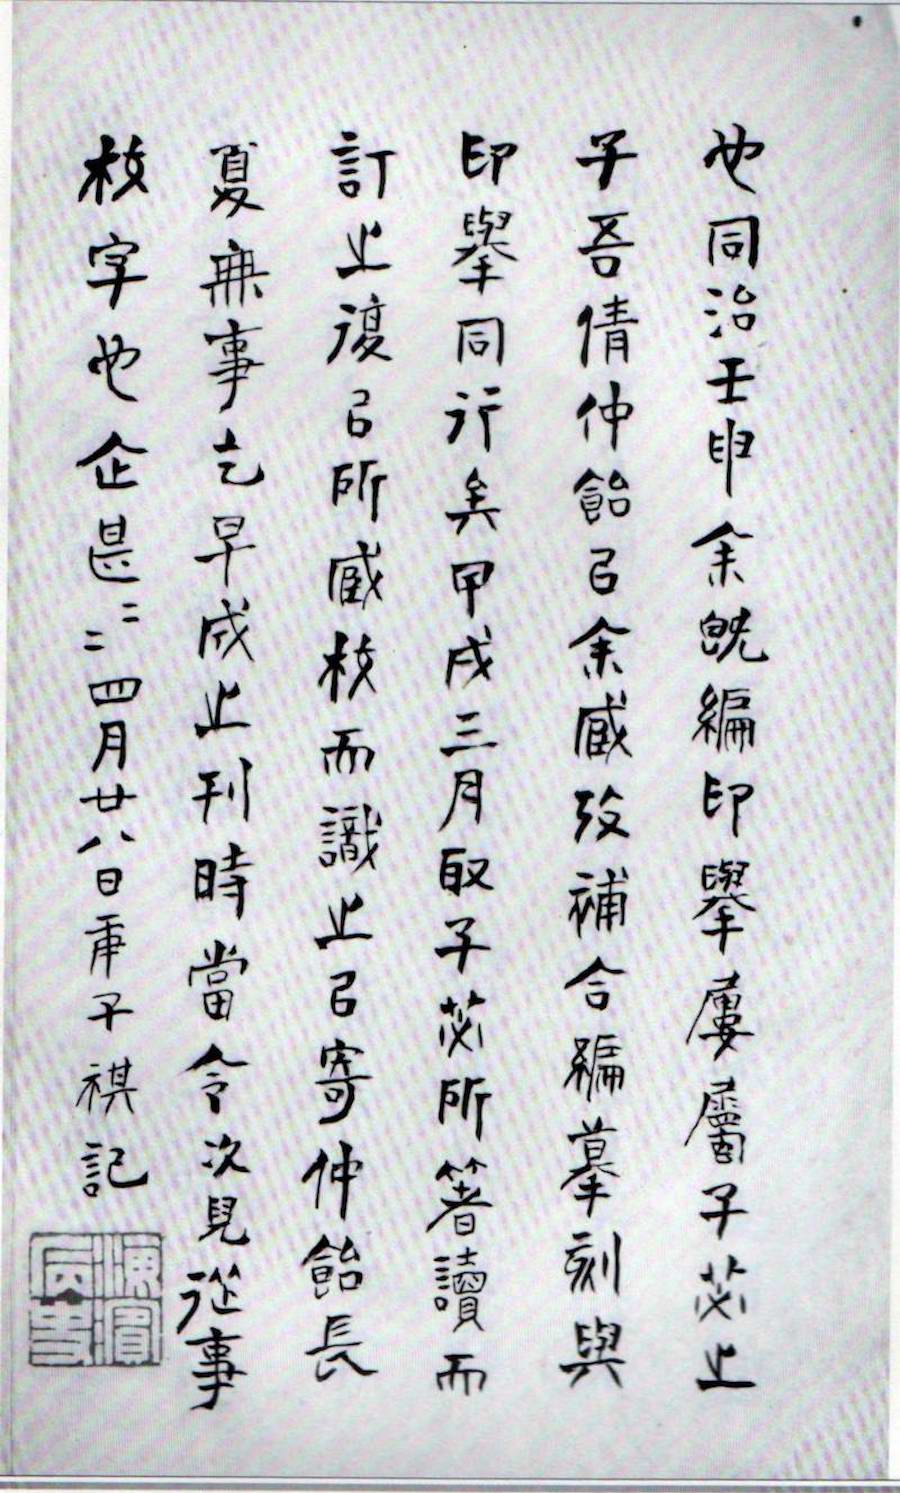 也同治壬申余既編印舉屢屬子苾止
子吾倩仲飴㠯余臧攷補合編摹刻與
印舉同行矣甲戌三月取子苾所箸讀而
訂止復㠯所臧校而識止㠯寄仲飴長
夏無事乞早成止刊時當令次兒從事
校字也企甚二二四月廿八日庚子祺記
海濱